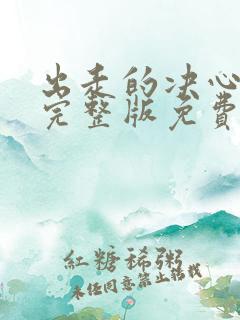 出泵的决心
完整版免費
紅糖稀粥
未经同意禁止转载